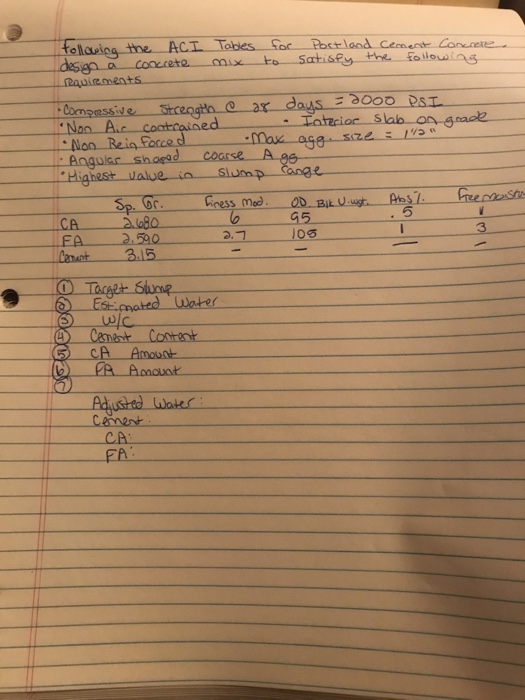 Following the ACI Tables for Portland Cement Concrete,
design a concrete mix to satisfy the following
requirements
• Compressive Strength @ 28 days = 2000 PSI
• Non Air contrained • Interior Slab on grade
• Non Reinforced • Max agg. size = 1 1/2"
- Angular shaped coarse Agg
• Highest value in slump range
Sp. Gr. finess mod. OD. Blk U.wgt. Abs %. free
CA 2.680 6 95 .5 1
FA 2.590 2.7 105 1 3
Cement 3.15 — — — —
① Target Slump
② Estimated Water
③ W/C
④ Cement Content
⑤ CA Amount
⑥ FA Amount
⑦
Adjusted Water:
Cement:
CA:
FA: